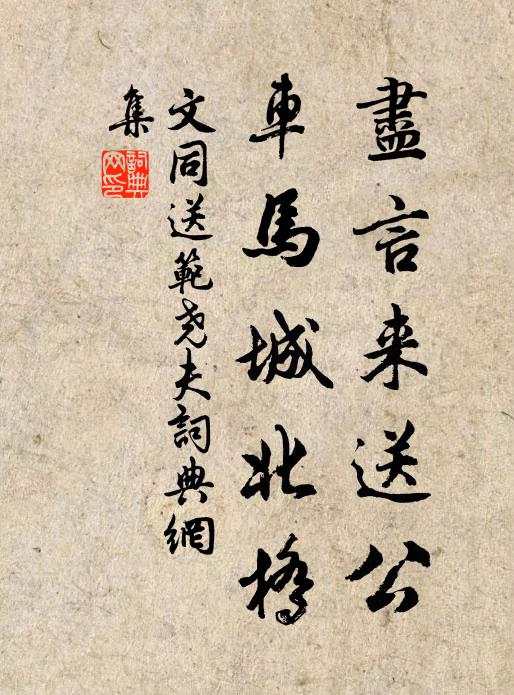 盡言来送公
車馬城北橋
文同送範尧夫詞典網
集
詞典網印